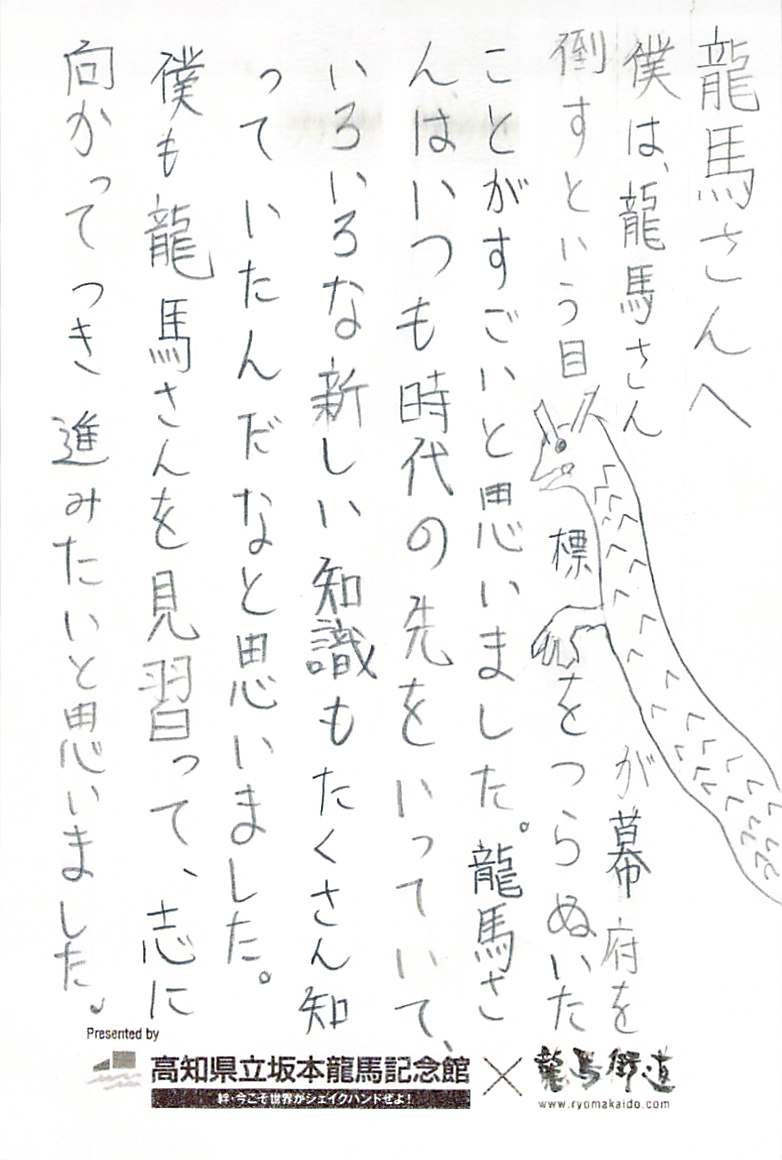 龍馬さんへ
僕は、龍馬さんが幕府を
倒すという目標をつらぬいた
ことがすごいと思いました。龍馬さ
んはいつも時代の先をいっていて、
いろいろな新しい知識もたくさん知
っていたんだなと思いました。
僕も龍馬さんを見習って、志に
向かってつき進みたいと思いました。
Presented by
高知県立坂本龍馬記念館
絆・今こそ世界がシェイクハンドぜよ!
×
龍馬街道
www.ryomakaido.com